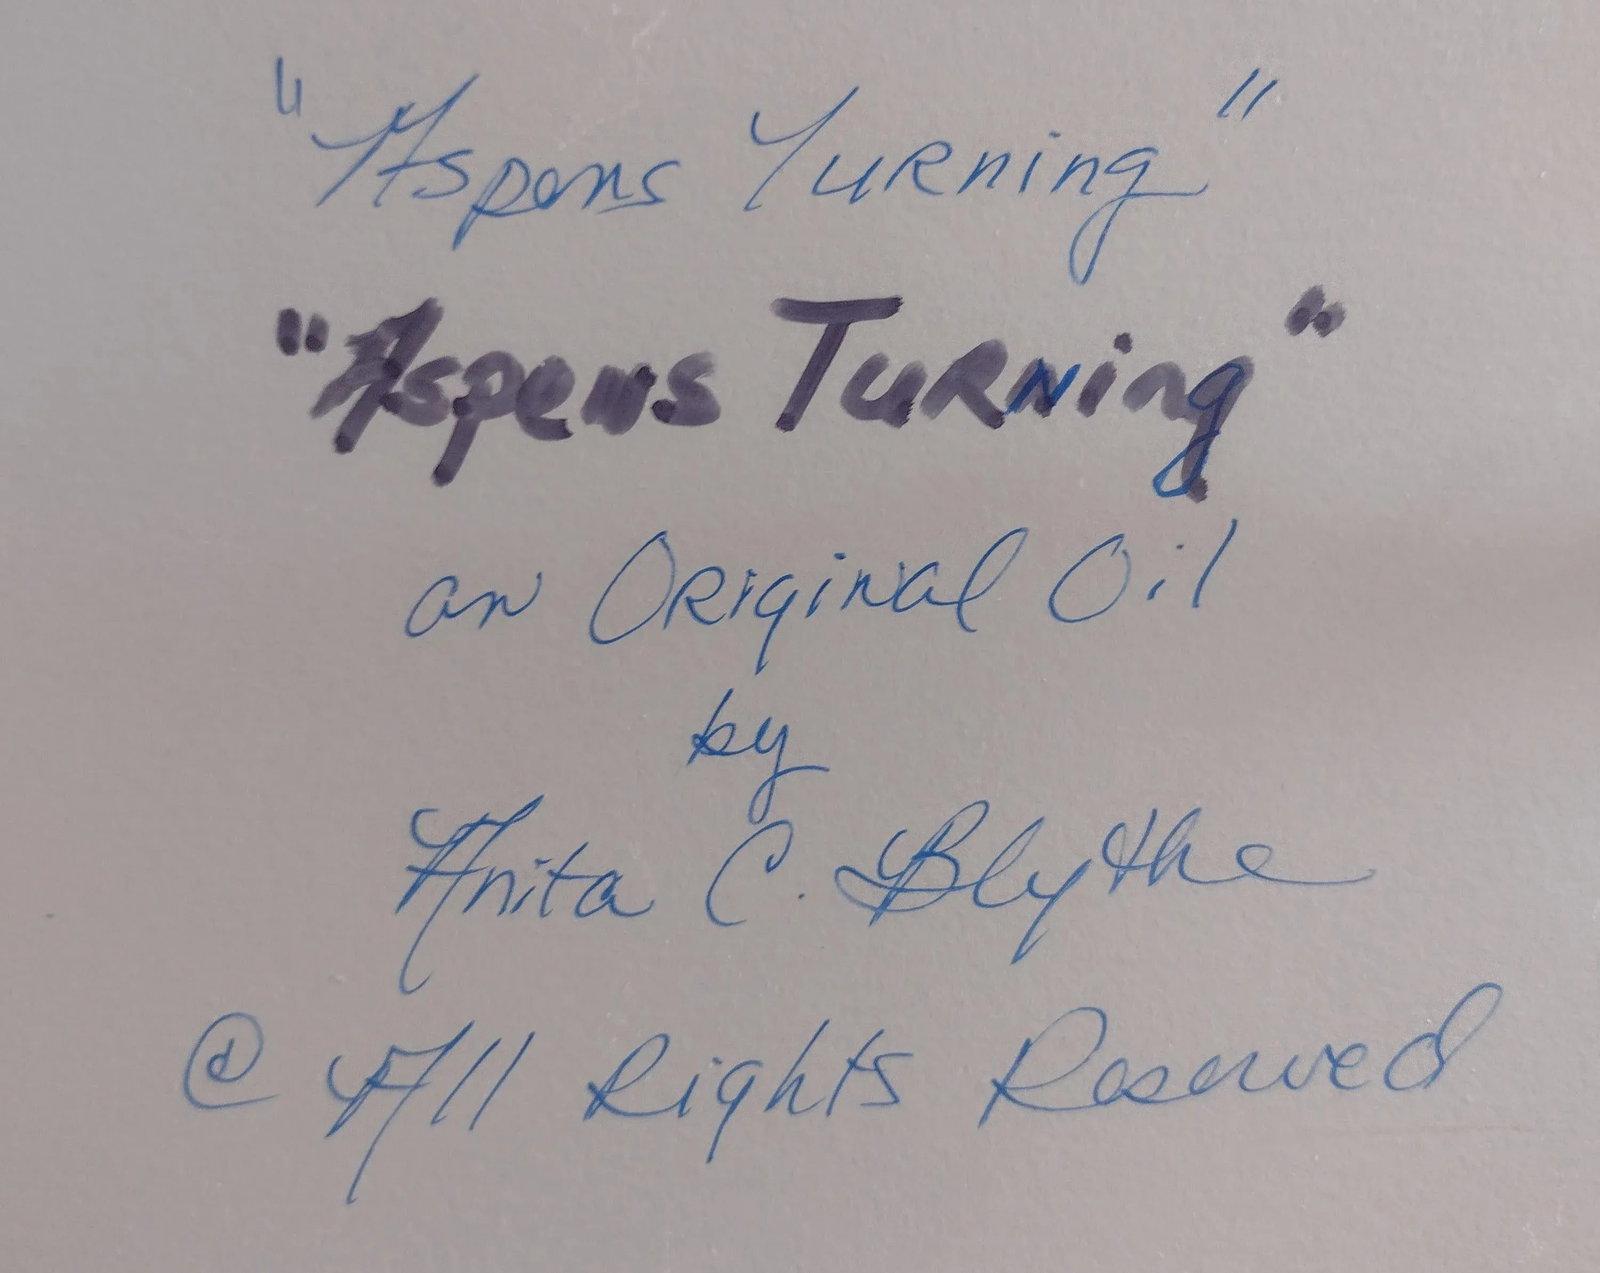 "Aspens Turning"
"Aspens Turning"
an Original Oil
by
Anita C. Blythe
@ All Rights Reserved